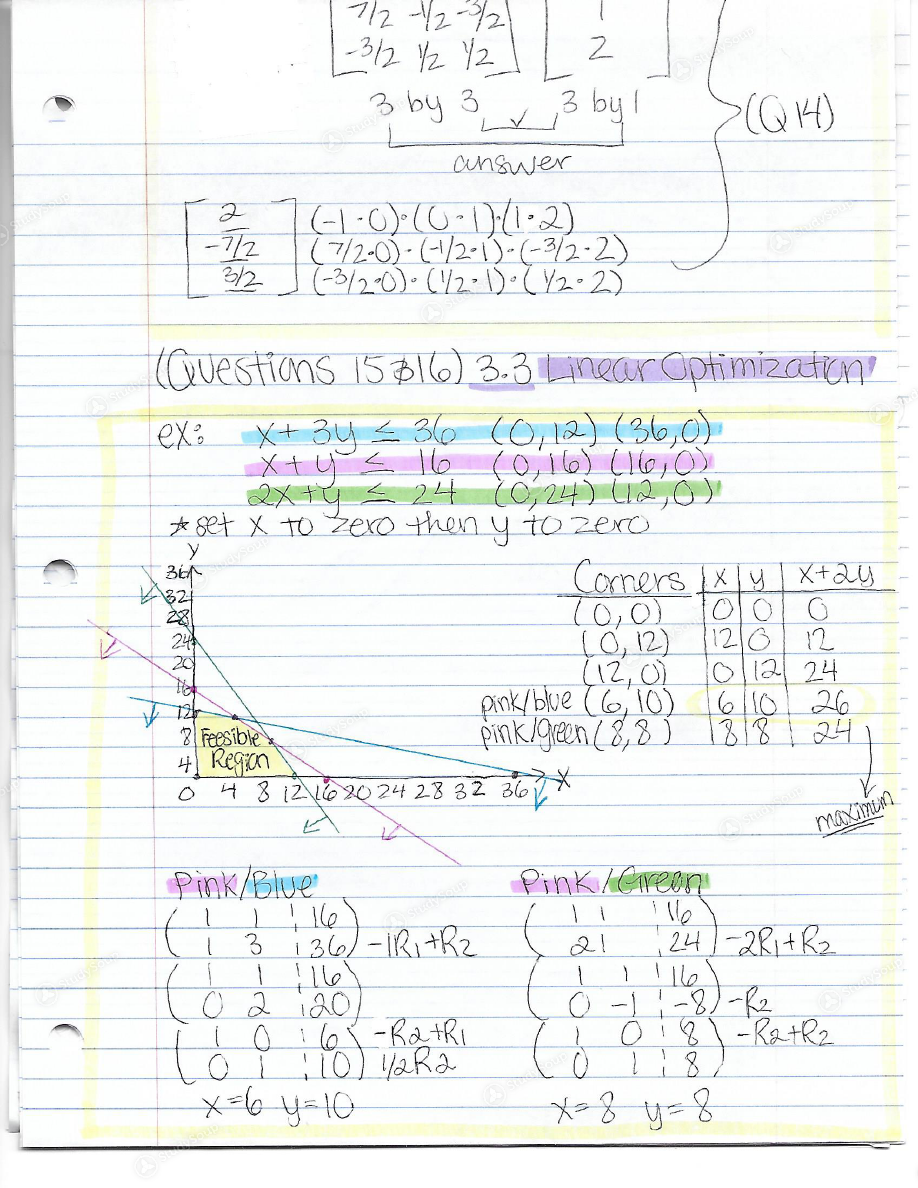 7/2 -1/2 -3/2 1
-3/2 1/2 1/2 2
3 by 3 3 by 1
(Q 14)
answer
2 (-1·0)·(0·1)·(1·2)
-7/2 (7/2·0)·(-1/2·1)·(-3/2·2)
3/2 (-3/2·0)·(1/2·1)·(1/2·2)
(Questions 15 & 16) 3.3 Linear Optimization
ex: x + 3y ≤ 36 (0,12) (36,0)
x + y ≤ 16 (0,16) (16,0)
2x + y ≤ 24 (0,24) (12,0)
* set x to zero then y to zero
y
36
32
28
24
20
16
12
8
4
Feesible
Region
0 4 8 12 16 20 24 28 32 36 x
Corners x y x+2y
(0,0) 0 0 0
(0,12) 12 0 12
(12,0) 0 12 24
pink/blue (6,10) 6 10 26
pink/green (8,8) 8 8 24
maximum
Pink/Blue
1 1 16
1 3 36 -1R1+R2
1 1 16
0 2 20
1 0 6 -R2+R1
0 1 10 1/2R2
x=6 y=10
Pink/Green
1 1 16
2 1 24 -2R1+R2
1 1 16
0 -1 -8 -R2
1 0 8 -R2+R2
0 1 8
x=8 y=8
StudySoup